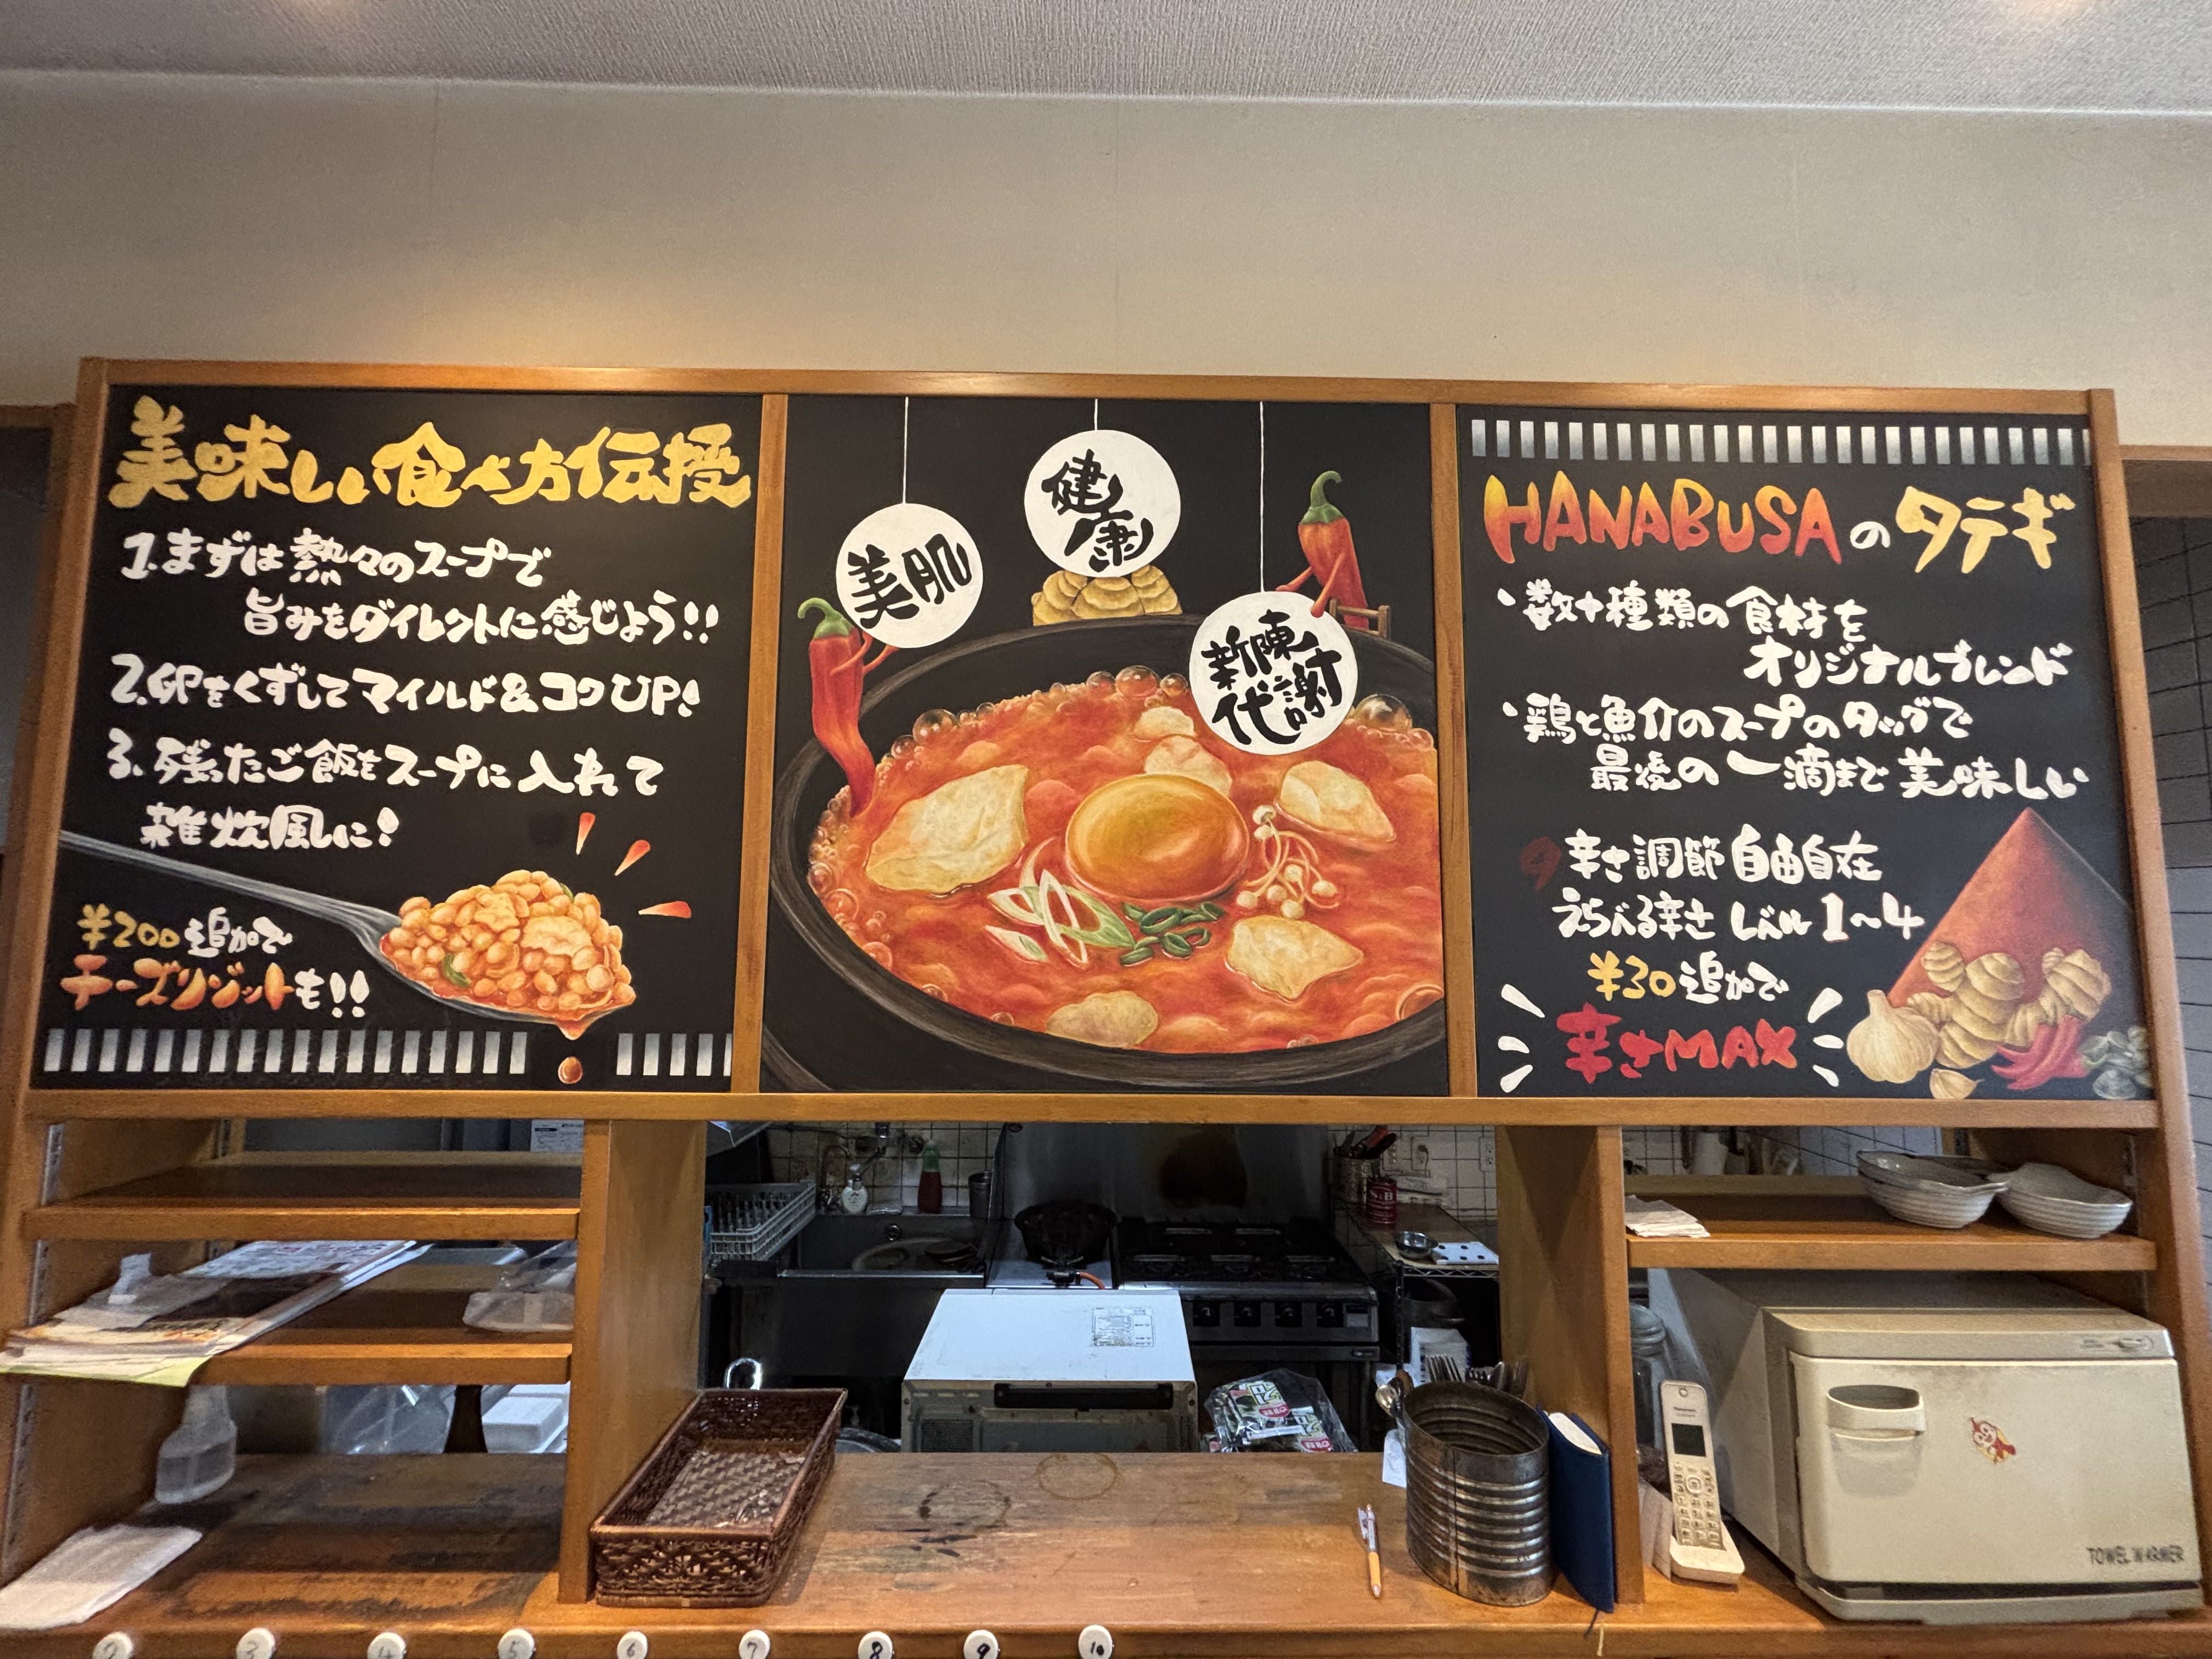 美味しい食べ方伝授
1.まずは熱々のスープで
旨みをダイレクトに感じよう!!
2.卵をくずしてマイルド&コクUP!
3.残ったご飯をスープに入れて
雑炊風に!
¥200追加で
チーズリゾットも!!
美肌
健康
新陳
代謝
HANABUSAのタテギ
・数十種類の食材を
オリジナルブレンド
・鶏と魚介のスープのタッグで
最後の一滴まで美味しい
辛さ調節自由自在
えらべる辛さ レベル1～4
¥30追加で
辛さMAX
S&B
Panasonic
TOWEL WARMER
2
3
4
5
6
7
8
9
10